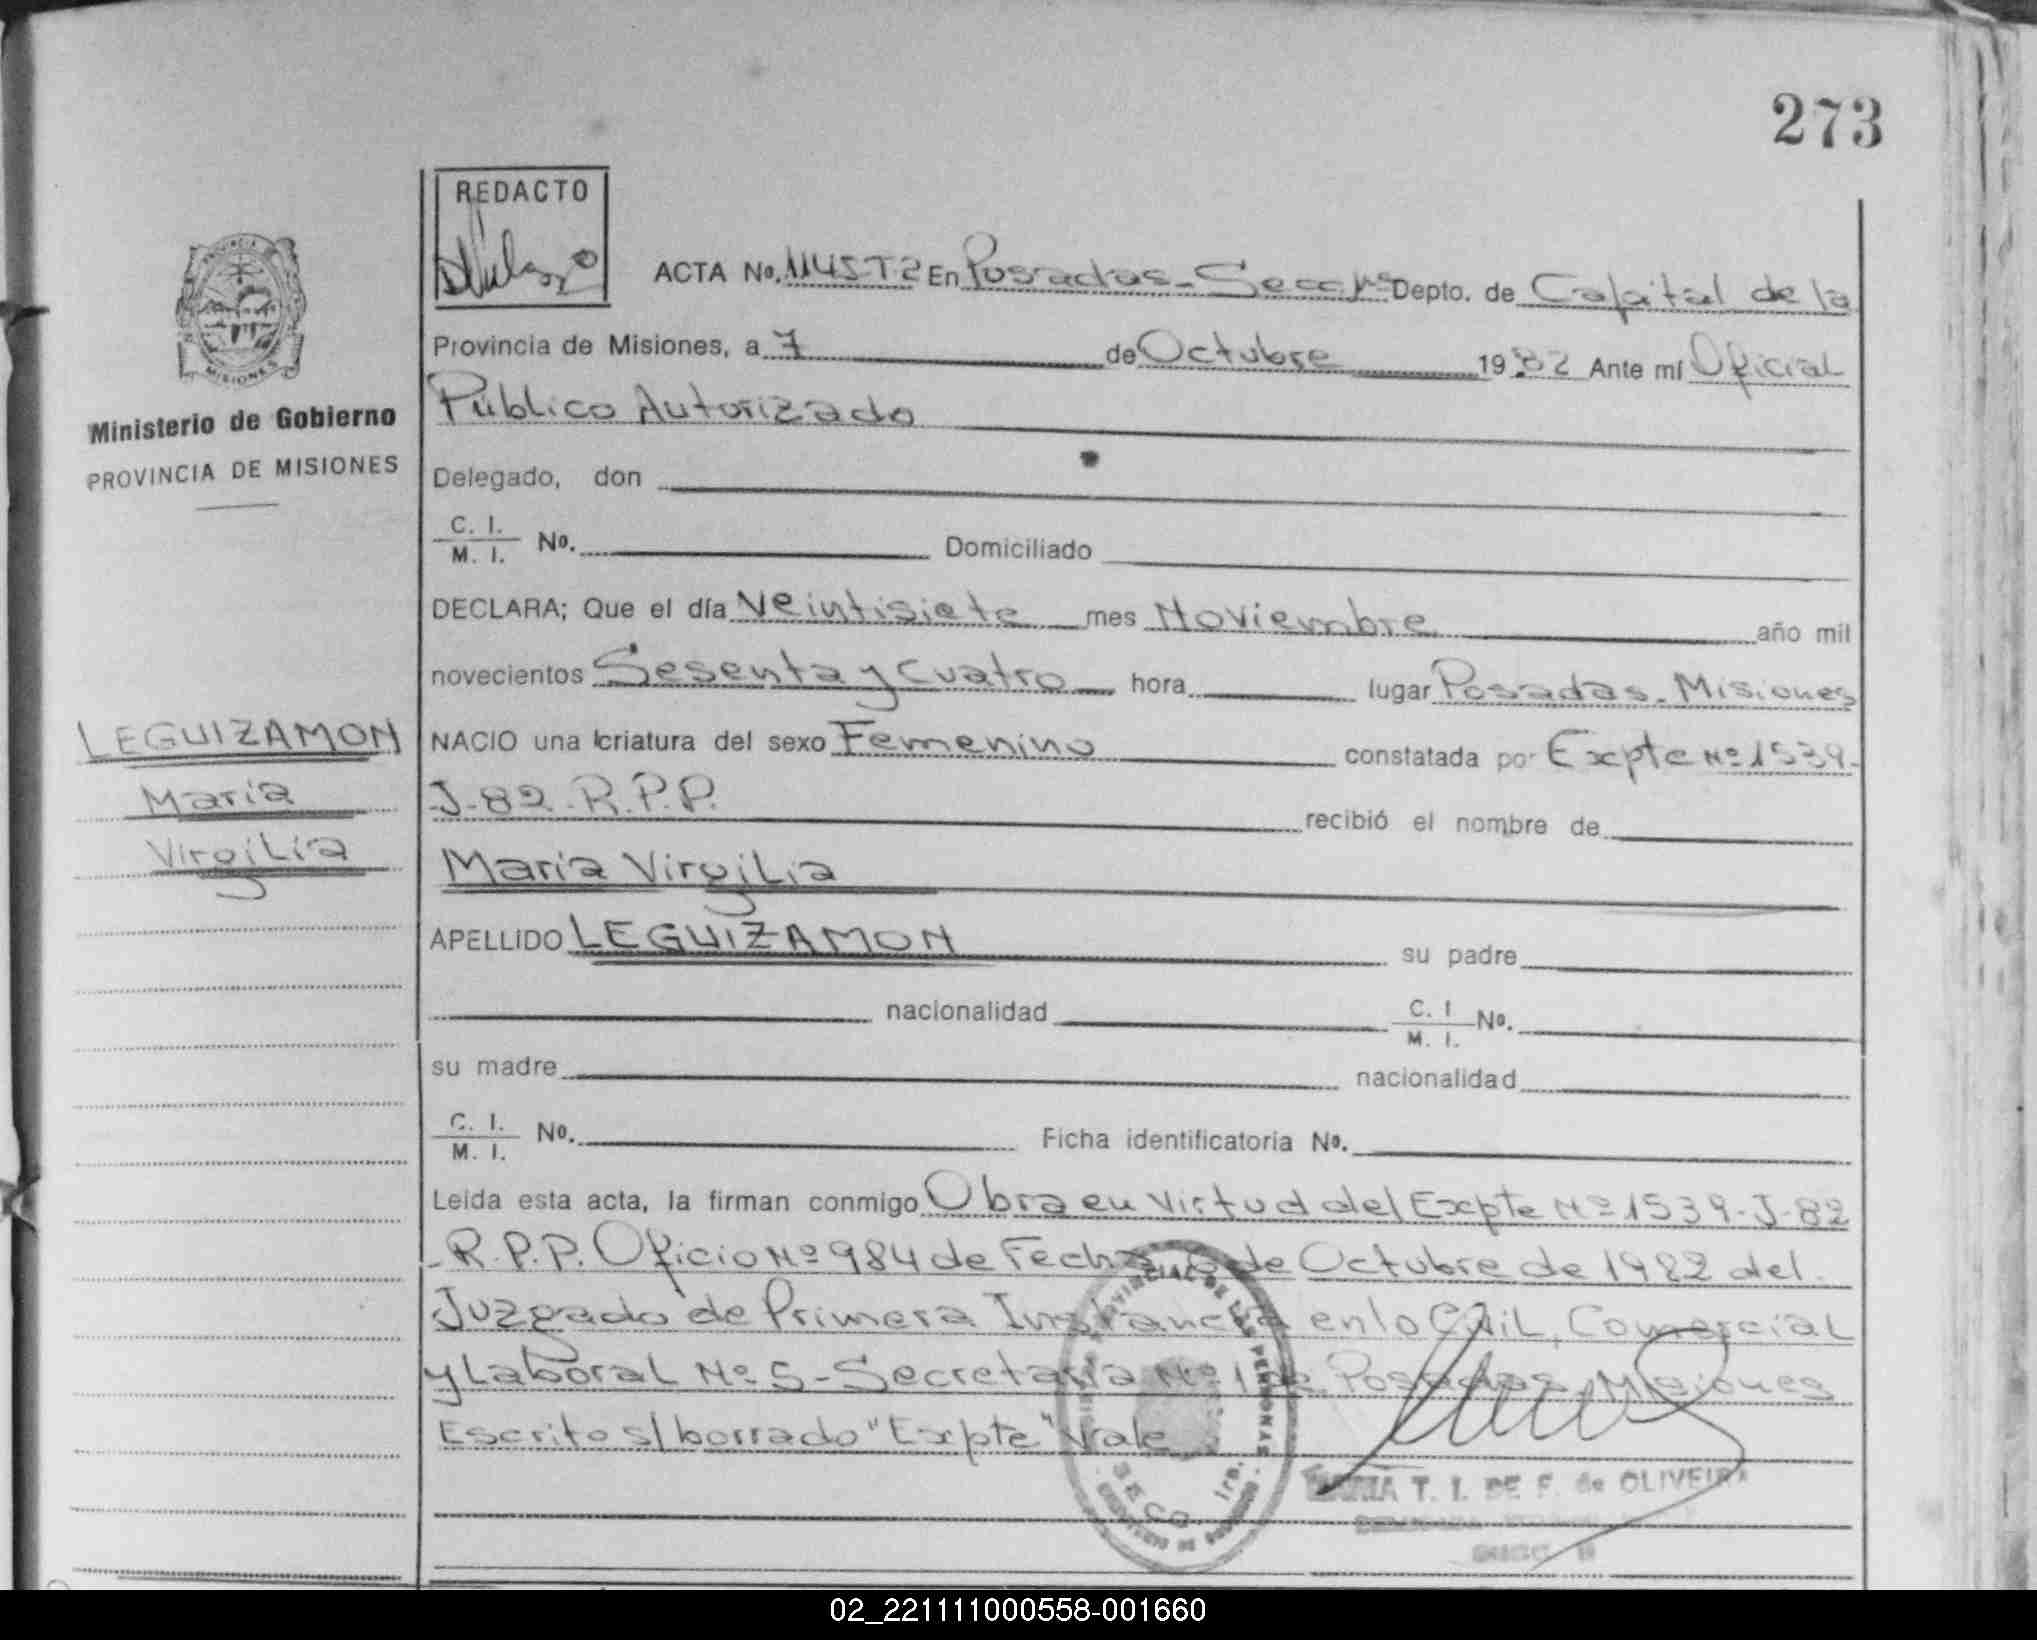 273
REDACTO
ACTA No. 1145 T 2 En Posadas - Secc 1ra Depto. de Capital de la
Provincia de Misiones, a 7 de Octubre 1982 Ante mí Oficial
Público Autorizado
PROVINCIA
MISIONES
Ministerio de Gobierno
PROVINCIA DE MISIONES
Delegado, don
C. I.
M. I. No. Domiciliado
DECLARA; Que el día Veintisiete mes Noviembre año mil
novecientos Sesenta y Cuatro hora lugar Posadas - Misiones
LEGUIZAMON
María
Virgilia
NACIO una criatura del sexo Femenino constatada por Expte Nº 1539-
J-82-R.P.P. recibió el nombre de
María Virgilia
APELLIDO LEGUIZAMON su padre
nacionalidad C. I
M. I. No.
su madre nacionalidad
C. I.
M. I. No. Ficha identificatoria No.
Leída esta acta, la firman conmigo Obra en Virtud del Expte Nº 1539-J-82
-R.P.P. Oficio Nº 984 de Fecha 6 de Octubre de 1982 del
Juzgado de Primera Instancia en lo Civil, Comercial
y Laboral Nº 5 - Secretaría Nº 1 de Posadas, Misiones
Escrito s/ borrado "Expte" Vale
SECC. 1ra.
MARIA T. I. DE F. de OLIVEIRA
02_221111000558-001660